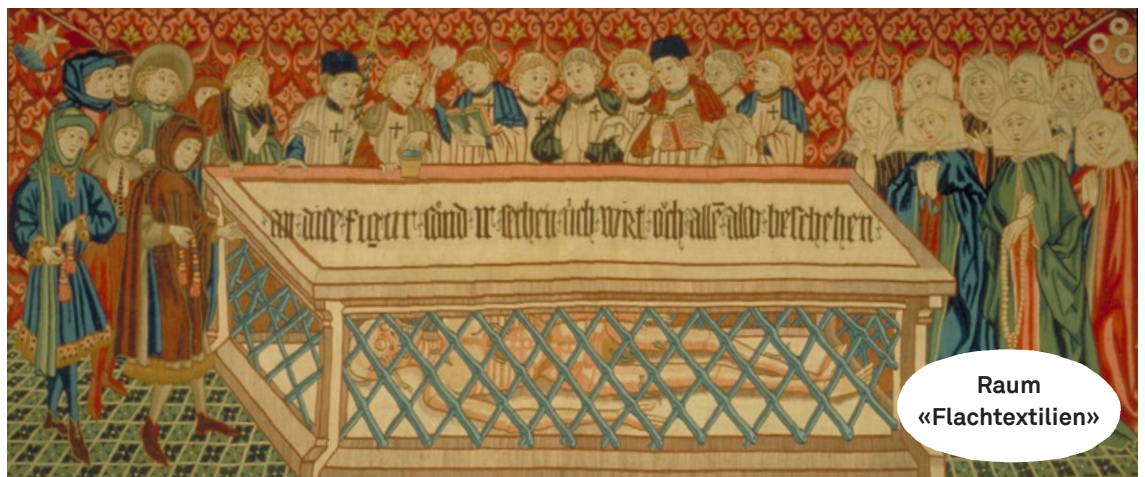 an dise figur sönd ir sechen üch wirt öch also beschehen
Raum
«Flachtextilien»